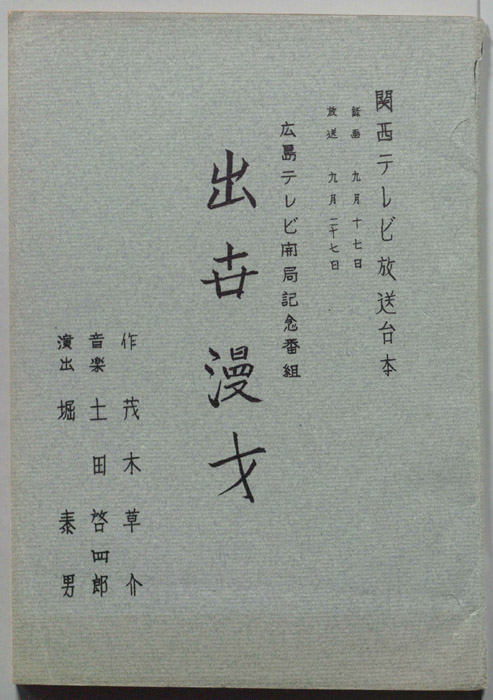 関西テレビ放送台本
録画 九月十七日
放送 九月二十七日
広島テレビ開局記念番組
出世漫才
作 茂木草介
音楽 土田啓四郎
演出 堀泰男